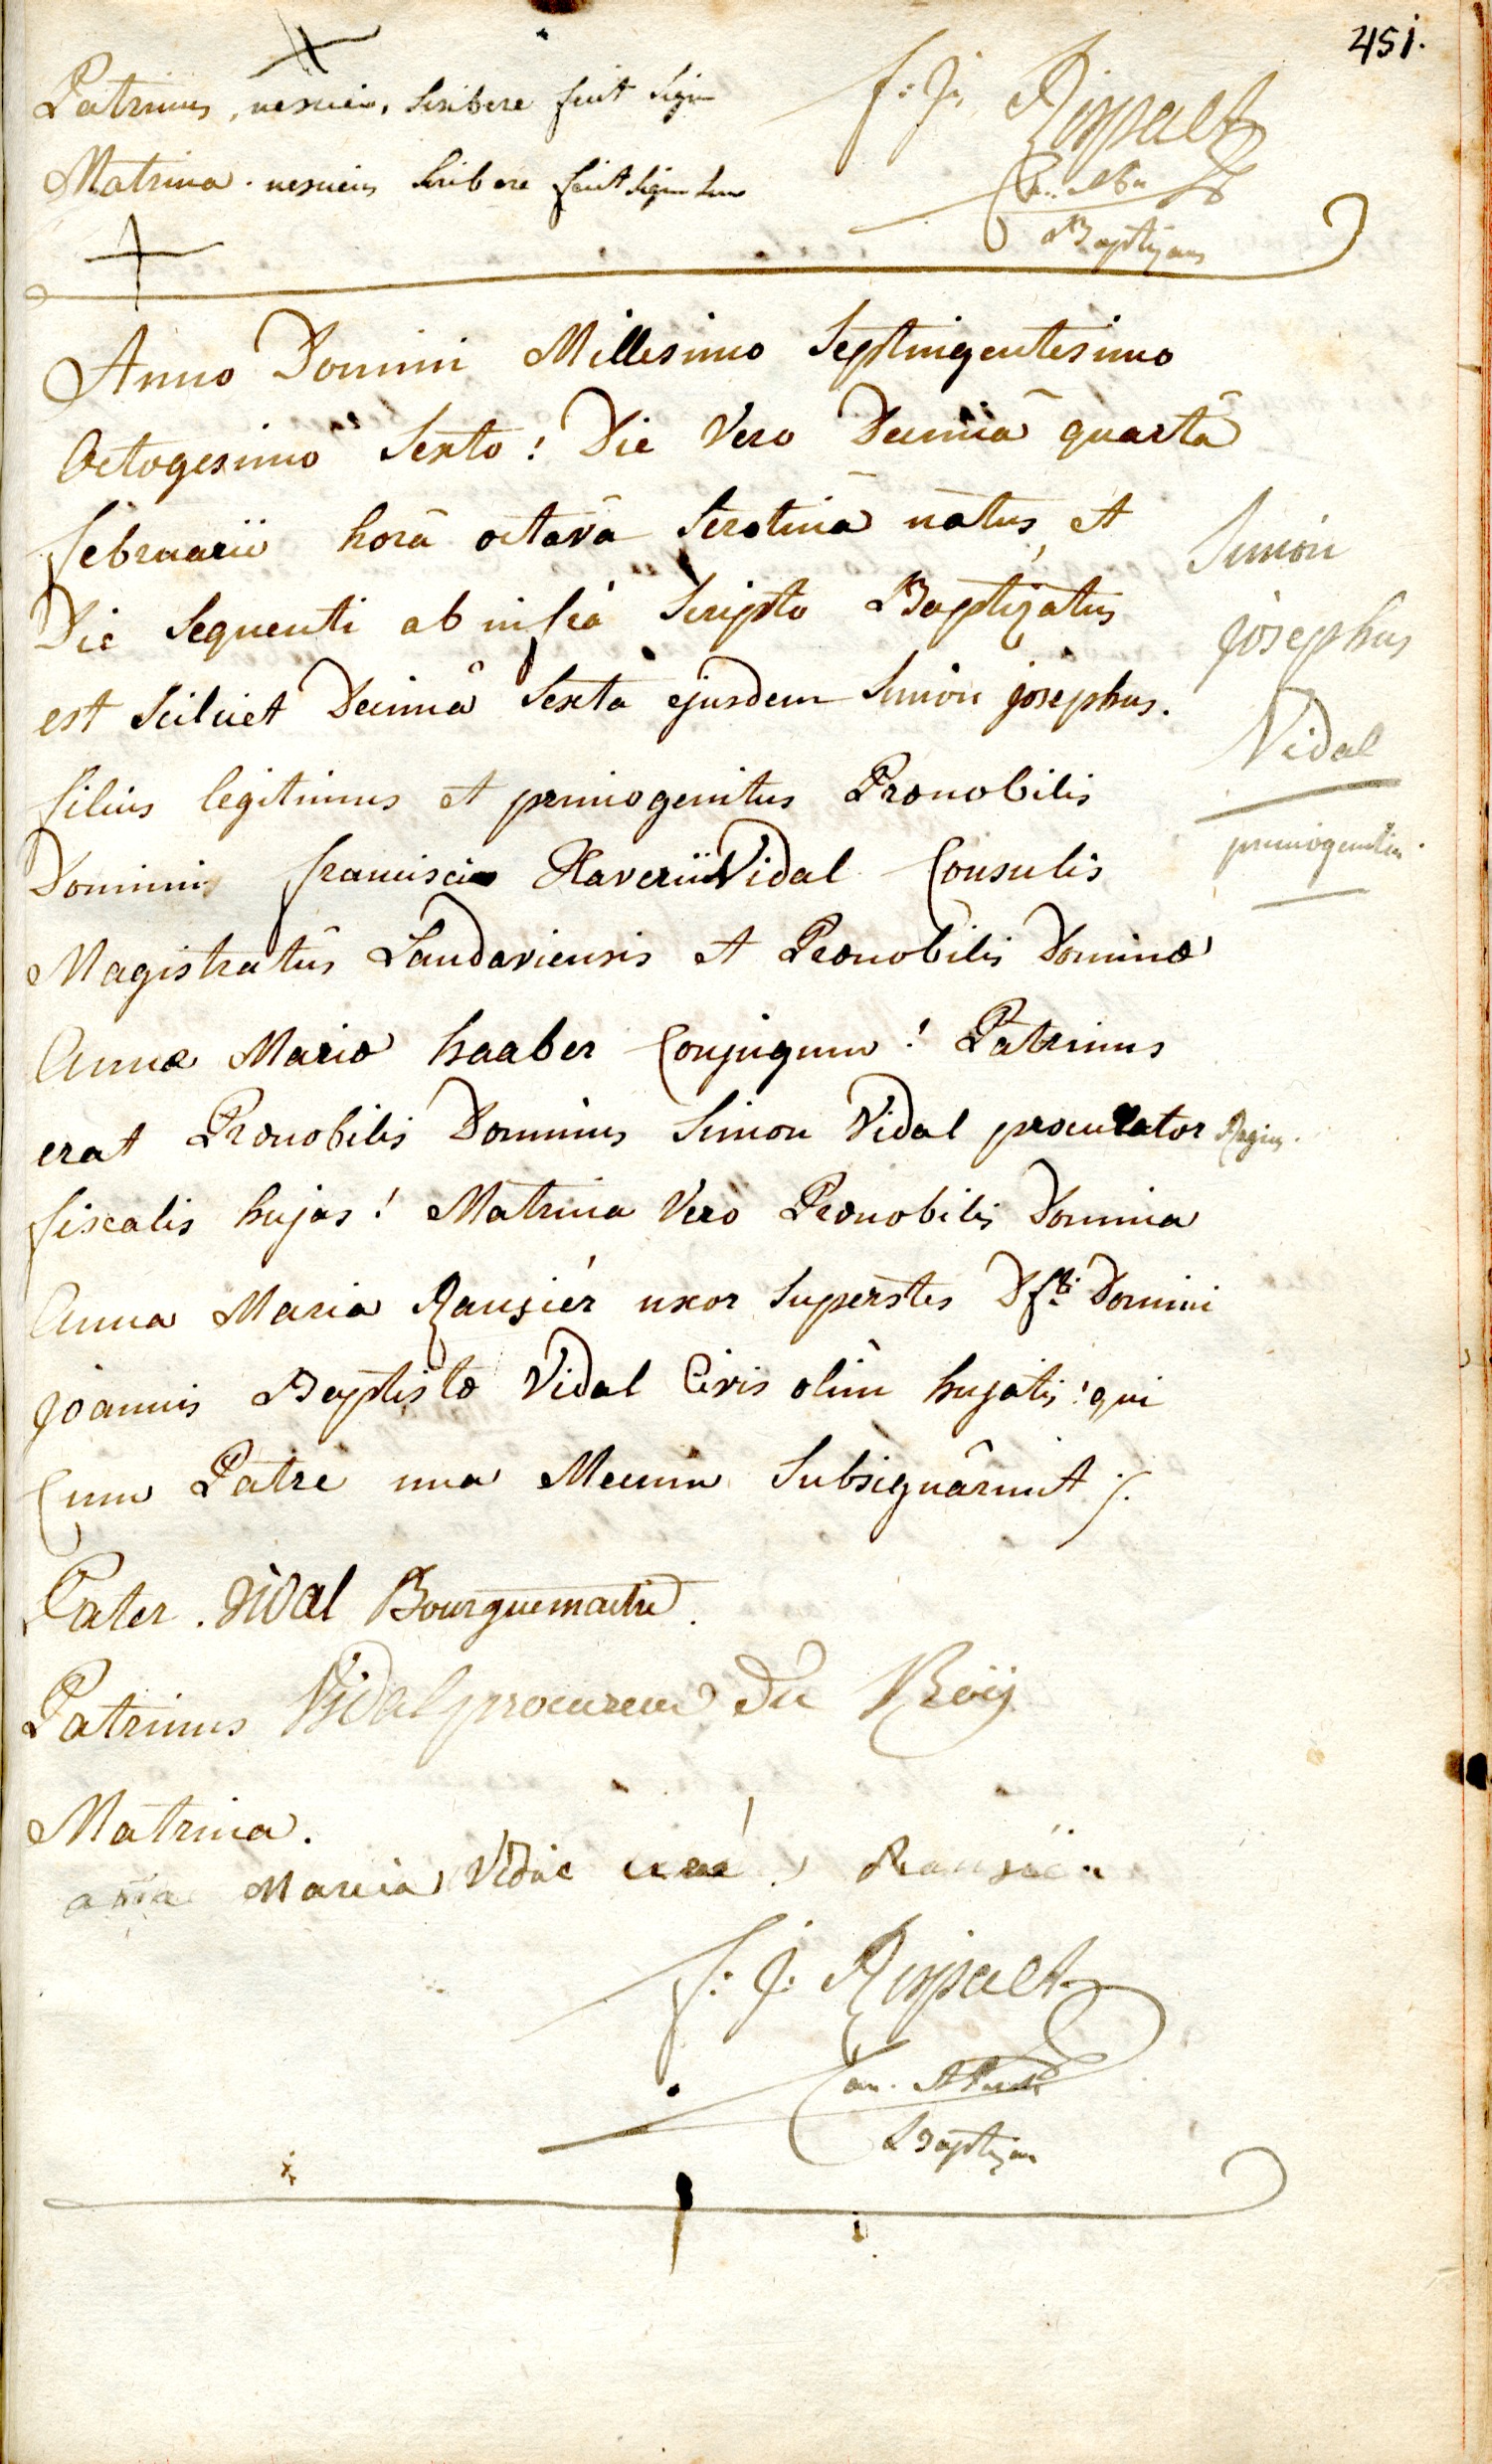 451.
Patrinus, nesciens scribere fecit sign
Matrina. nesciens scribere fecit signum suum
f: j: Rispalt
Baptizans
Anno Domini Millesimo Septingentesimo
Octogesimo Sexto! Die Vero Decimâ quartâ
februarii horâ octavâ Serotinâ natus, et
Die Sequenti ab infrà Scripto Baptizatus
est Scilicet Decimâ Sexta ejusdem Simon josephus.
filius legitimus et primogenitus Prænobilis
Domini francisci Xaverii Vidal Consulis
Magistratûs Landaviensis et Prænobilis Dominæ
Annæ Mariæ haaber Conjugum! Patrinus
erat Prænobilis Dominus Simon Vidal procurator Regius.
fiscalis hujas! Matrina Vero Prænobilis Domina
Anna Maria Ranziér uxor superstes Dfti Domini
joannis Baptistæ Vidal Civis olim hujatis! qui
Cum Patre una Mecum Subsignârunt ./.
Simon
josephus
Vidal
primogenitus.
Pater. Vidal Bourguemaitre.
Patrinus Vidal procureur Du Roÿ
Matrina.
ana Maria Vidal
f: j: Rispalt
Can.
Baptizans